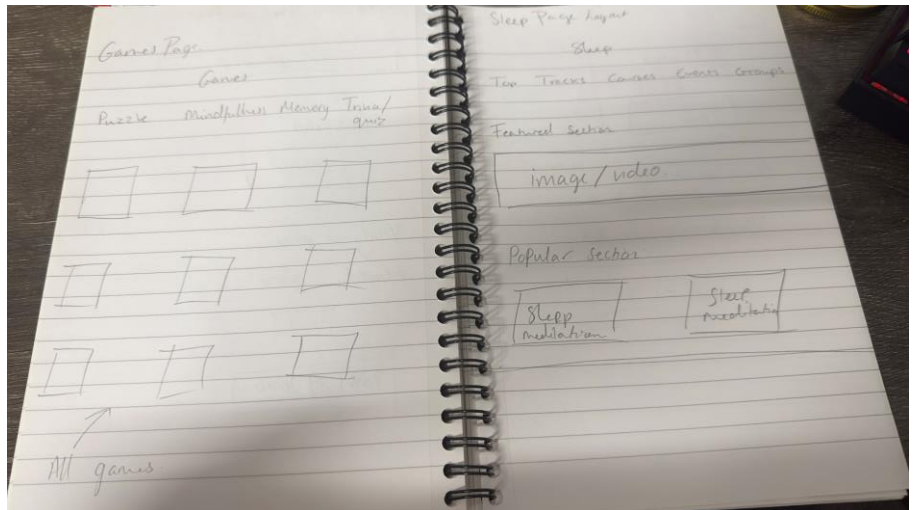 Games Page
Games
Puzzle Mindfulness Memory Trivia/
quiz
All games
Sleep Page Layout
Sleep
Top Tracks Courses Events Groups
Featured Section
image/video
Popular Section
Sleep
meditation
Sleep
meditation